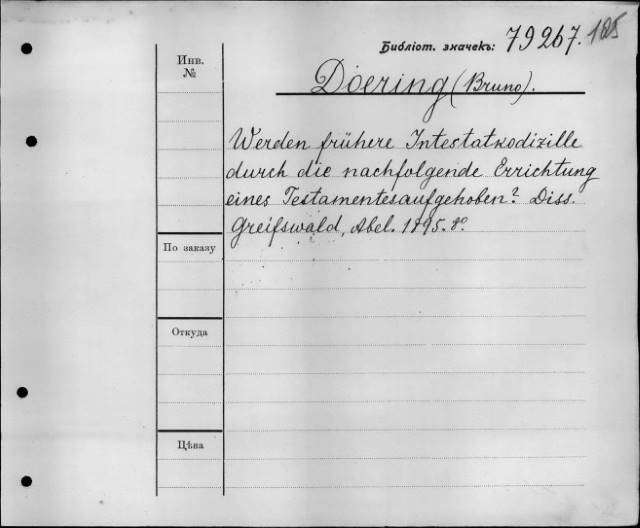 Библіот. значекъ: 79267. 185
Инв.
№
Doering (Bruno).
Werden frühere Intestatkodizille
durch die nachfolgende Errichtung
eines Testamentes aufgehoben? Diss.
Greifswald, Abel. 1895. 8°
По заказу
Откуда
Цѣна